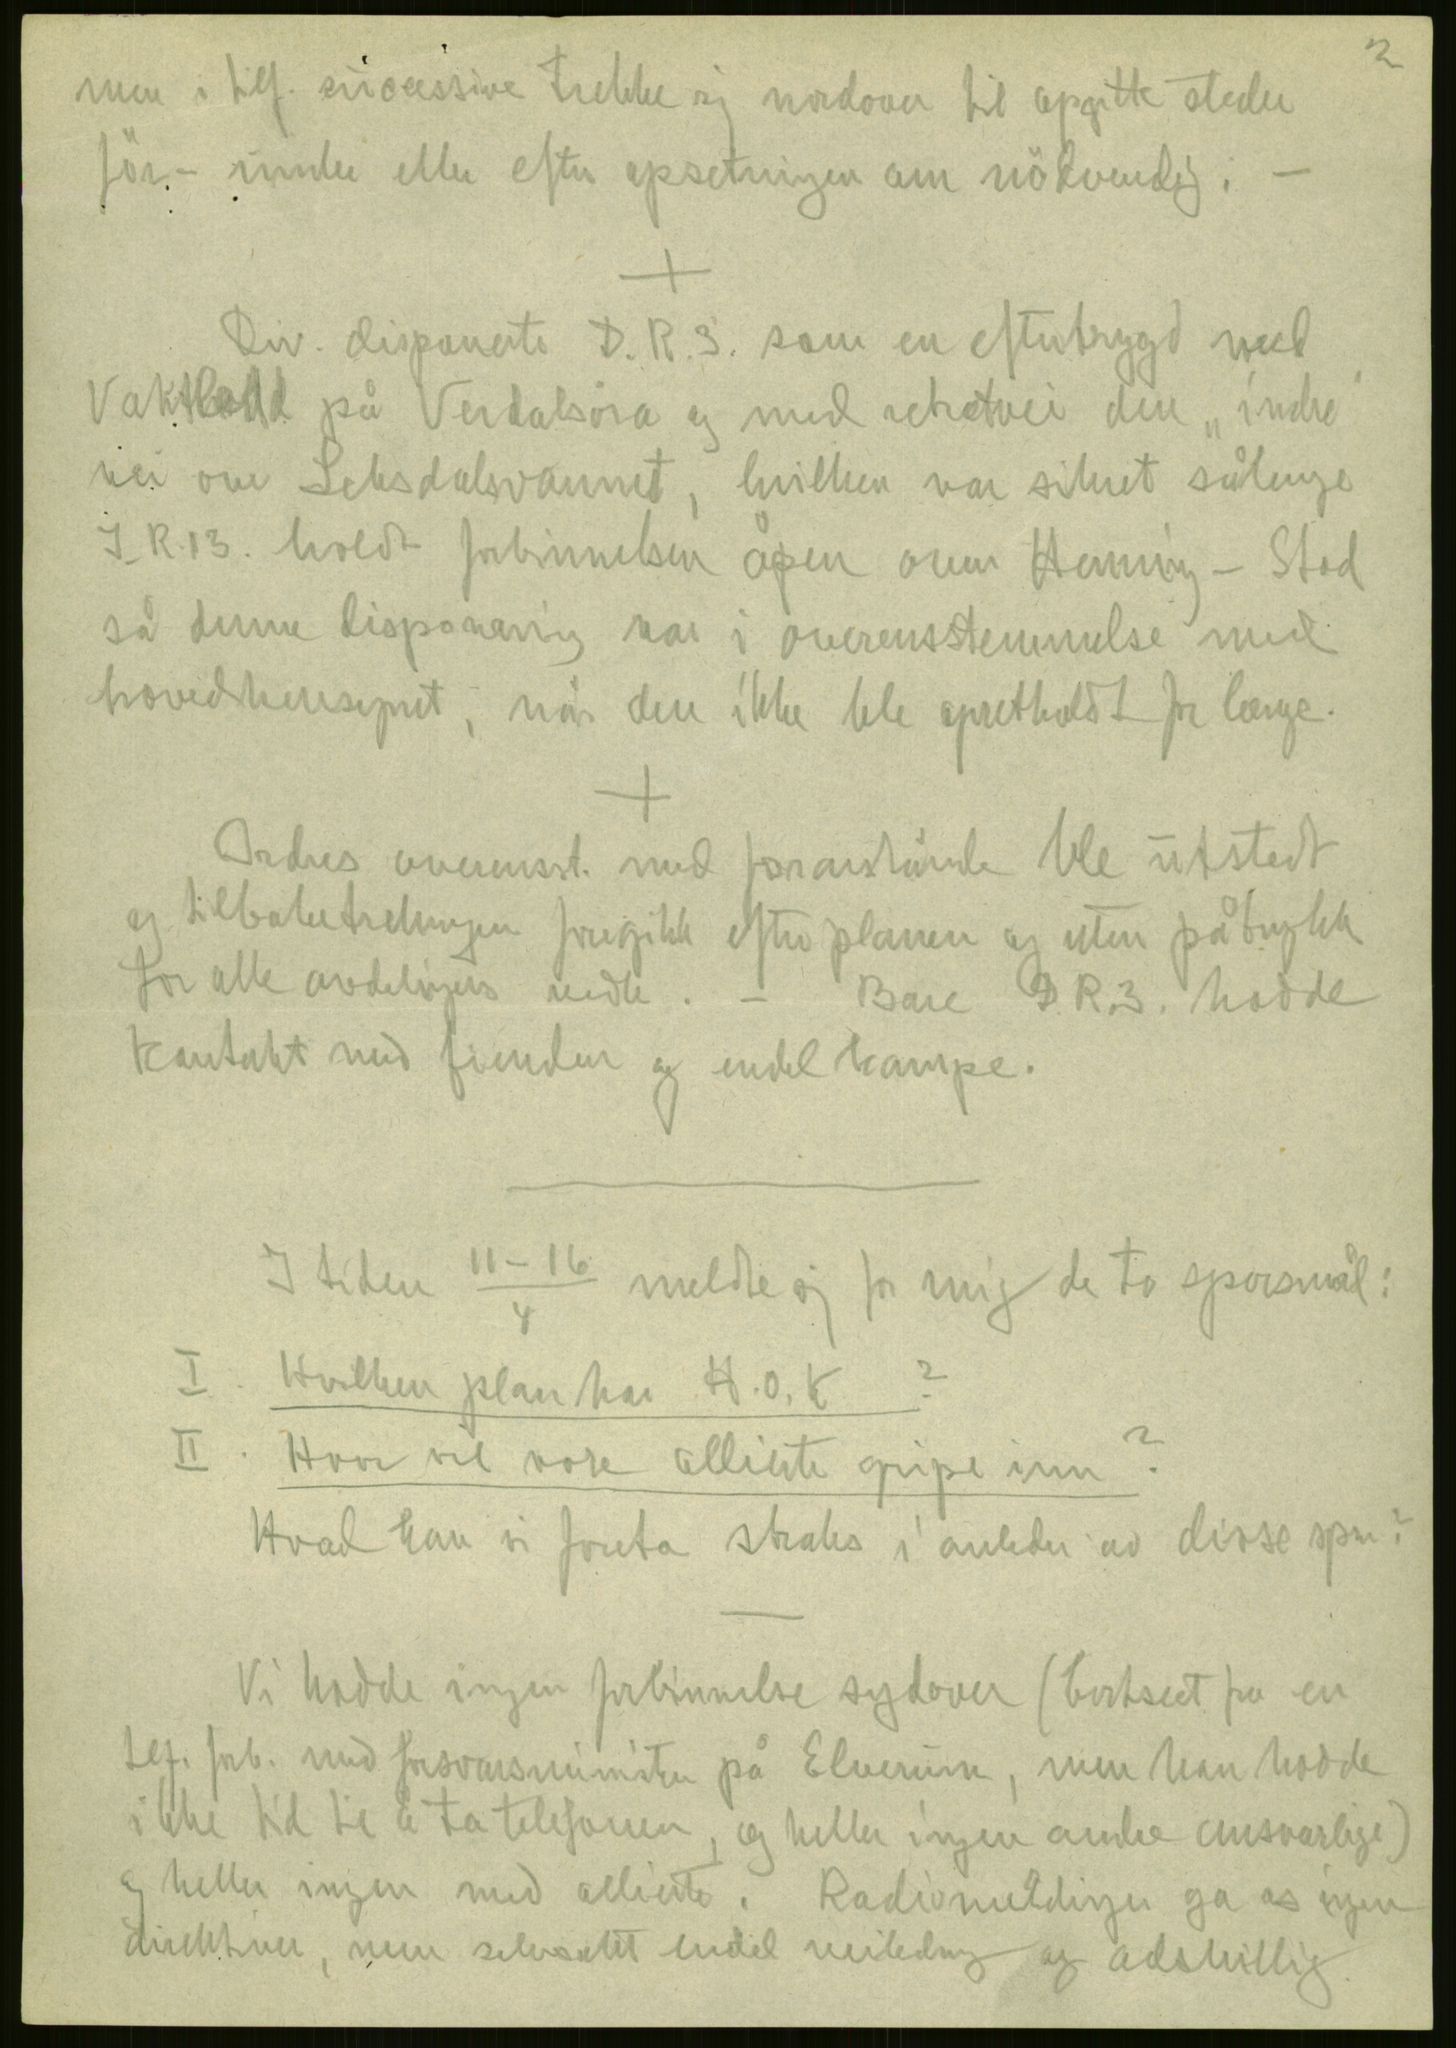 2
men i tilf. successive trekke sig nordover til opgitte steder
för- under eller efter opsetningen om nödvendig. –
+
Div. disponerte D.R.3. som en eftertrygd med
Vakthold på Verdalsöra og med retretvei den „indre"
vei over Leksdalsvannet, hvilken var sikret sålenge
I.R.13. holdt forbinnelsen åpen over Henning – Stod
så denne disponering var i overensstemmelse med
hovedhensynet, når den ikke ble opretholdt for lenge.
+
Ordres overensst. med foranstående ble utstedt
og tilbaketrekningen foregikk efter planen og uten påtrykk
for alle avdelingers vedk. – Bare D.R.3. hadde
kontakt med fienden og endel kampe.
I tiden 11–16/4 meldte sig for mig de to sporsmål:
I. Hvilken plan har H.O.K ?
II. Hvor vil vore allierte gripe inn ?
Hvad kan vi foreta straks i anledn av disse spm?
—
Vi hadde ingen forbinnelse sydover (bortsett fra en
tlf. forb. med forsvarsminister på Elverum, men han hadde
ikke tid til å ta telefonen, og heller ingen andre ansvarlige)
og heller ingen med allierte. Radiomeldinger ga os ingen
direktiver, men selvsakt endel veiledning og adskillig